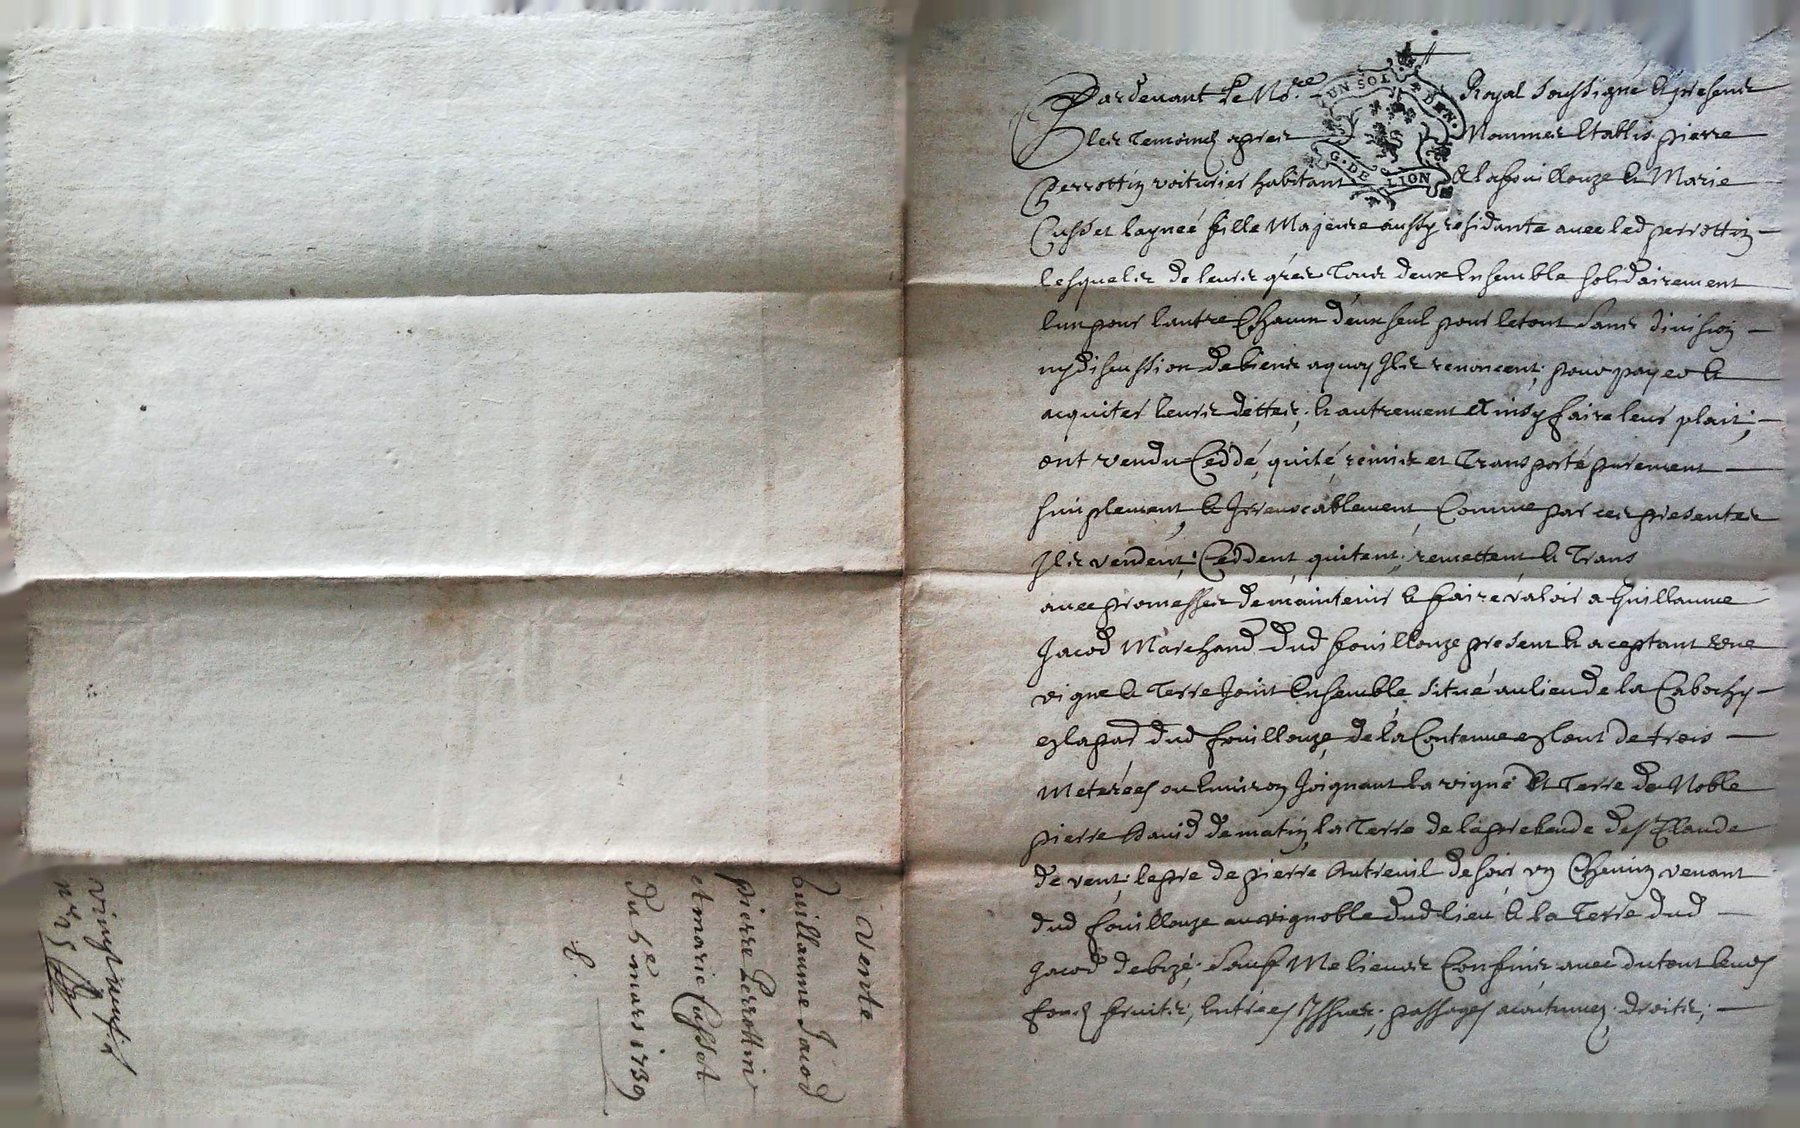 Pardevant le No.re Royal Soussigné & presens
les temoins apres Nommes Etablis pierre
Perrottin voiturier habitant a lafouillouze & Marie
Cusset laynée fille Majeure aussy residante avec led perrottin
lesquels de leurs grés tous deux Ensemble solidairement
lun pour lautre Chacun deux seul pour letout Sans division
ny discussion de biens aquoy Ils renoncent, pour payer &
acquiter leurs dettes, & autrement Ainsy faire leur plait;
ont vendu Ceddé, quité, remis et Transporté purement
simplement, & Irrevocablement, Comme par ces presentes
Ils vendent, Ceddent, quitent, remettent & Trans
avec promesses de maintenir & faire valoir a Guillaume
Jacod Marchand dud fouillouze present & aceptant une
vigne & Terre Joint Ensemble, situé aulieu de la Cabochy
dud fouillouze, de la Contenue de trois
Meterées ou Environ Joignant la vigne Et Terre de Noble
pierre David de matin, la Terre de la prebende de St Claude
de vent, le pre de pierre Autreuil de soir un Chemin venant
dud fouillouze au vignoble dud lieu & la Terre dud
Jacod de bize, Sauf Melieurs Confins avec du tout leurs
fonds fruits, Entrées Issues, passages acoutumez, droits,
UN SOL
DEN.
G. DE LION
Vente
Guillaume Jacod
pierre Perrottin
et marie Cusset
du 5e mars 1739
8.
vingt neuf